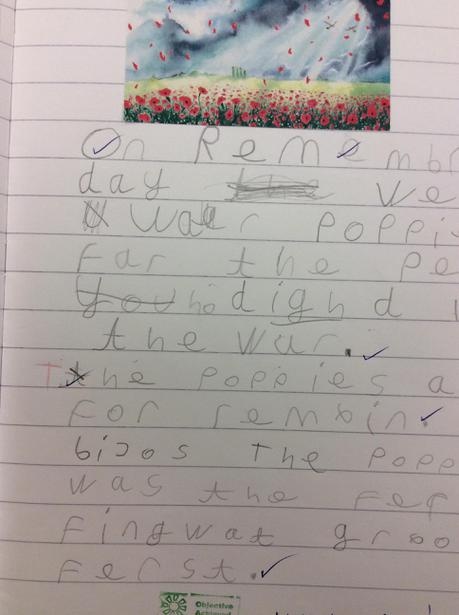 On Remembr
day we
war poppi
far the pe
ho dighd i
the war.
The poppies a
For rembin.
bicos the popp
was the fer
fingwat groo
ferst.
Objective
Achieved